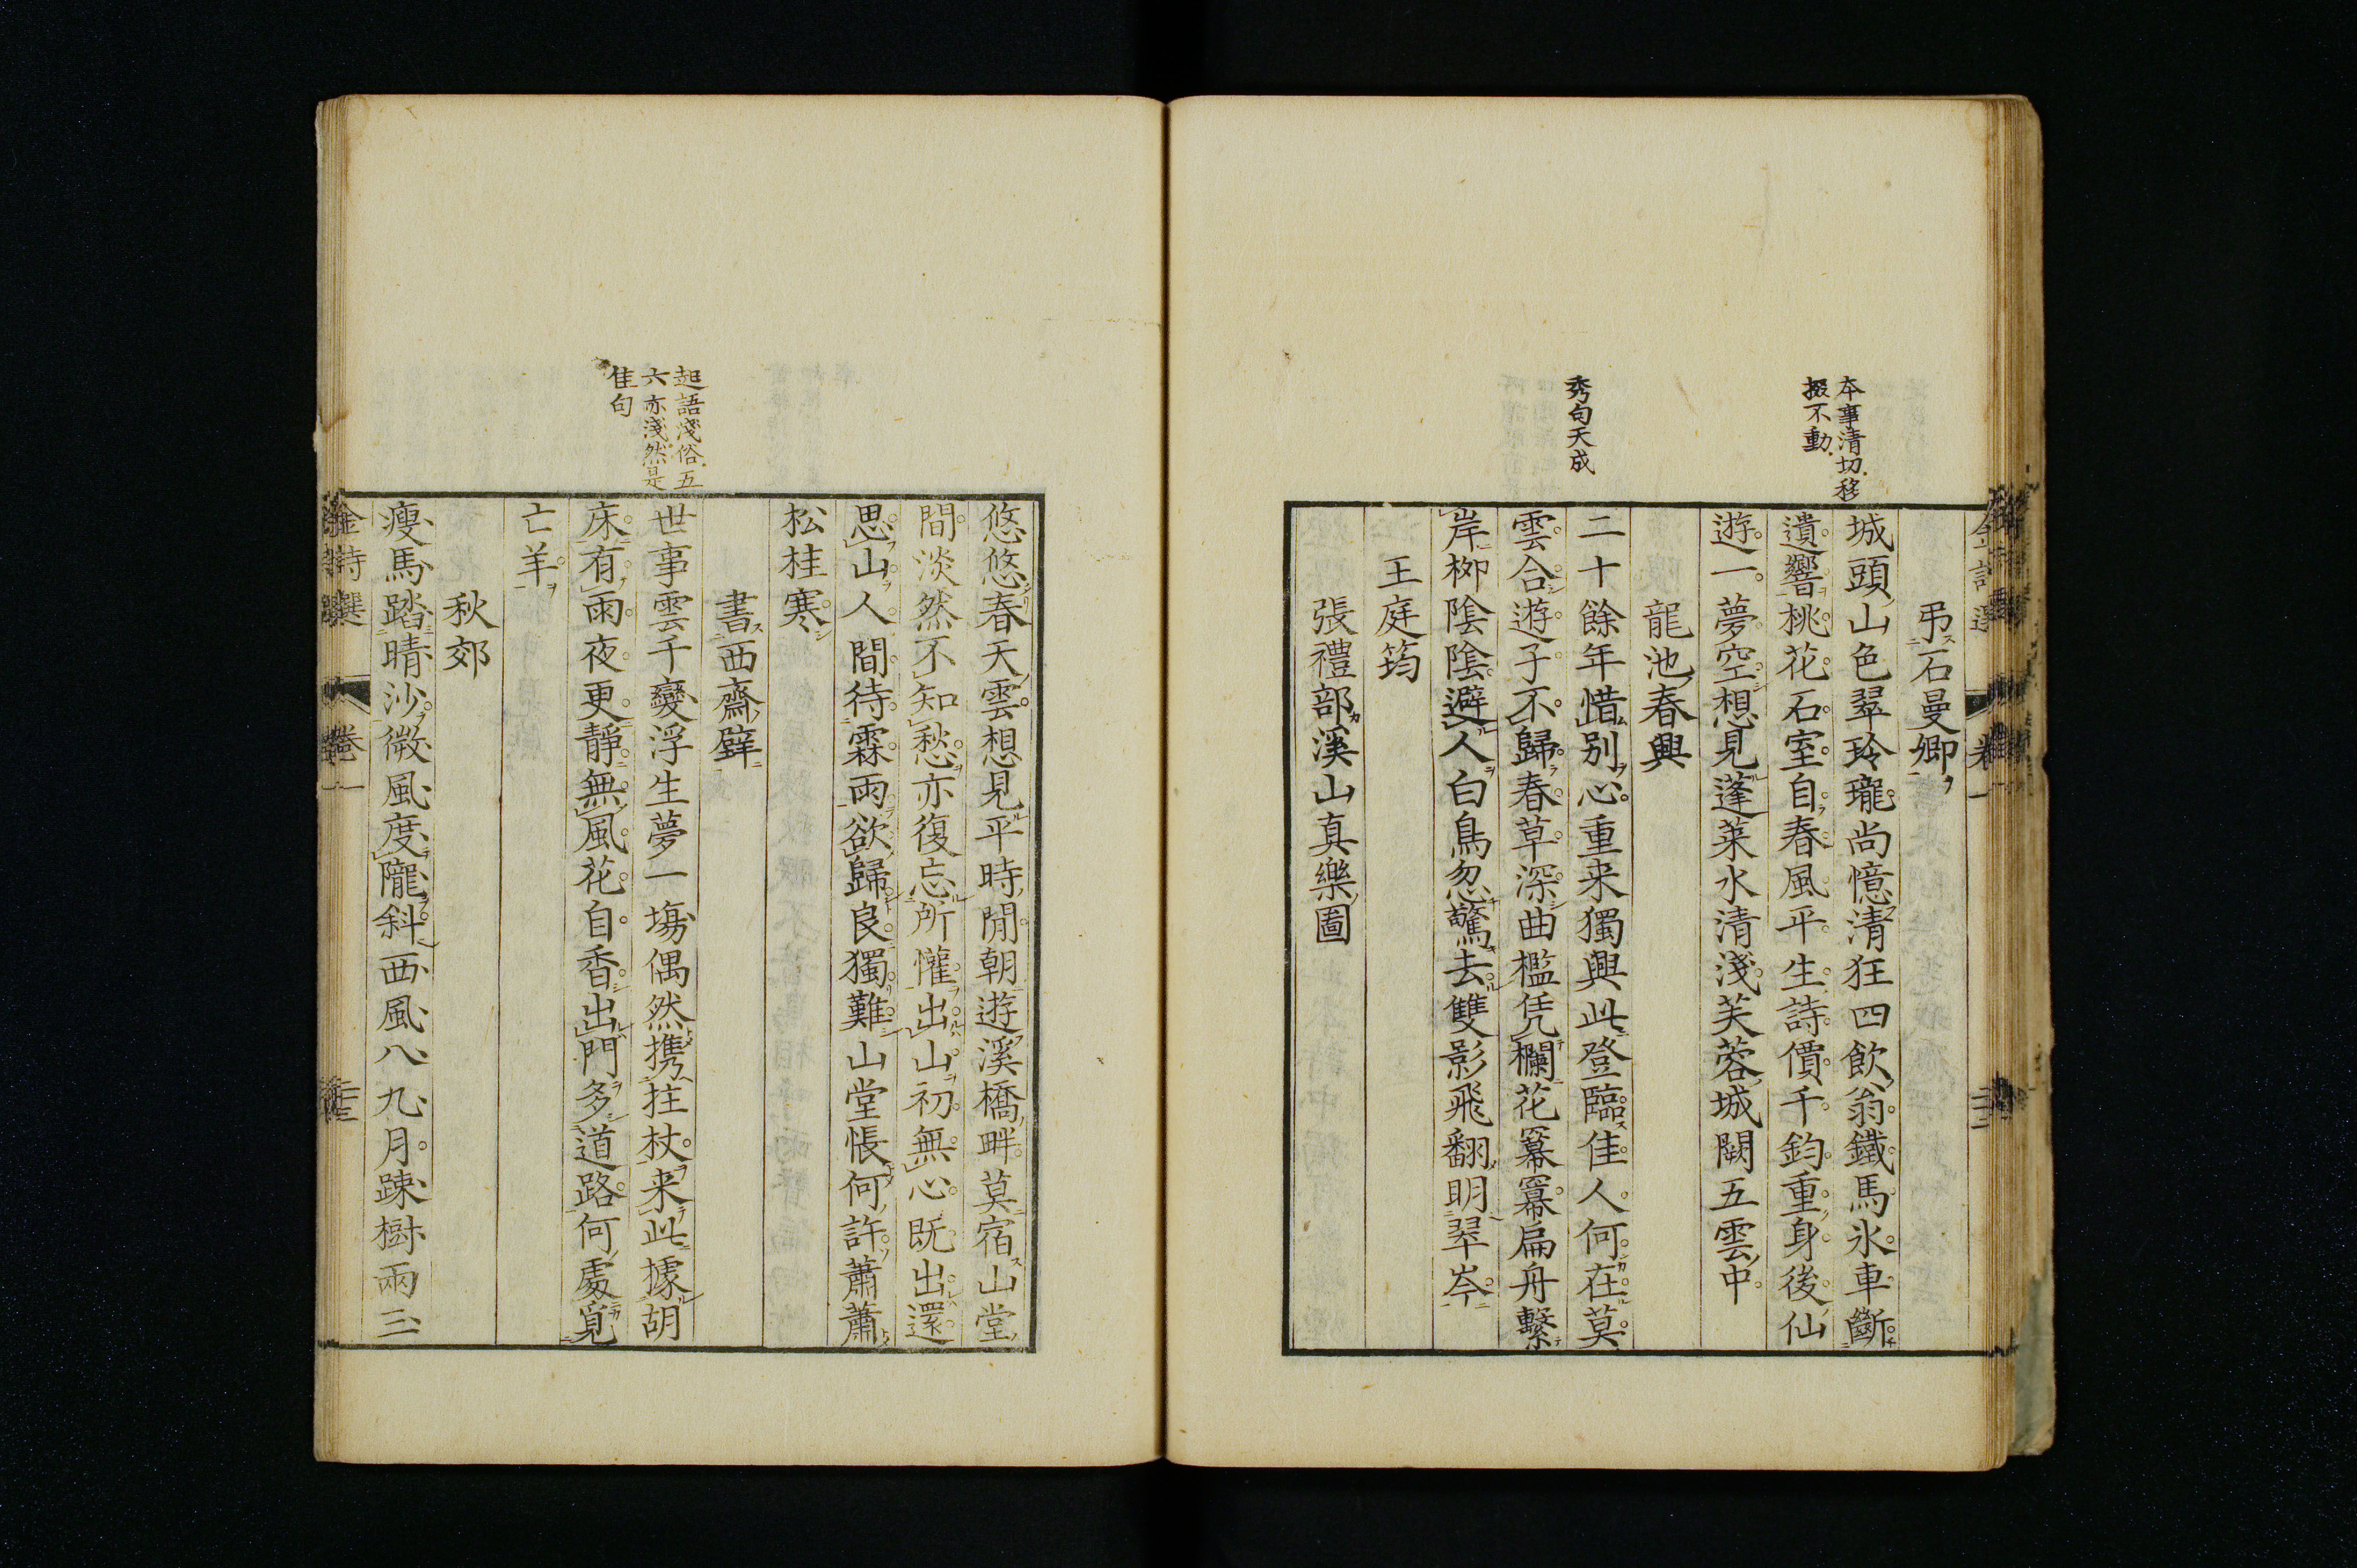 本事清切移
掇不動
秀句天成
弔石曼卿
城頭山色翠玲瓏尚憶清狂四飲翁鐵馬氷車斷
遺響桃花石室自春風平生詩價千鈞重身後仙
遊一夢空想見蓬萊水清淺芙蓉城闕五雲中
龍池春興
二十餘年惜別心重来獨興此登臨佳人何在莫
雲合遊子不歸春草深曲檻凭欄花冪冪扁舟繫
岸栁陰陰避人白鳥忽驚去雙影飛翻明翠岑
王庭筠
張禮部溪山真樂圖
起語淺俗五
六亦淺然是
佳句
悠悠春天雲想見平時閒朝遊溪橋畔莫宿山堂
間淡然不知愁亦復忘所懽出山初無心既出還
思山人間待霖雨欲歸良獨難山堂悵何許蕭蕭
松桂寒
書西齋壁
世事雲千變浮生夢一塲偶然携拄杖来此據胡
床有雨夜更靜無風花自香出門多道路何處覓
亡羊
秋郊
瘦馬踏晴沙微風度隴斜西風八九月踈樹兩三
金詩選 卷一